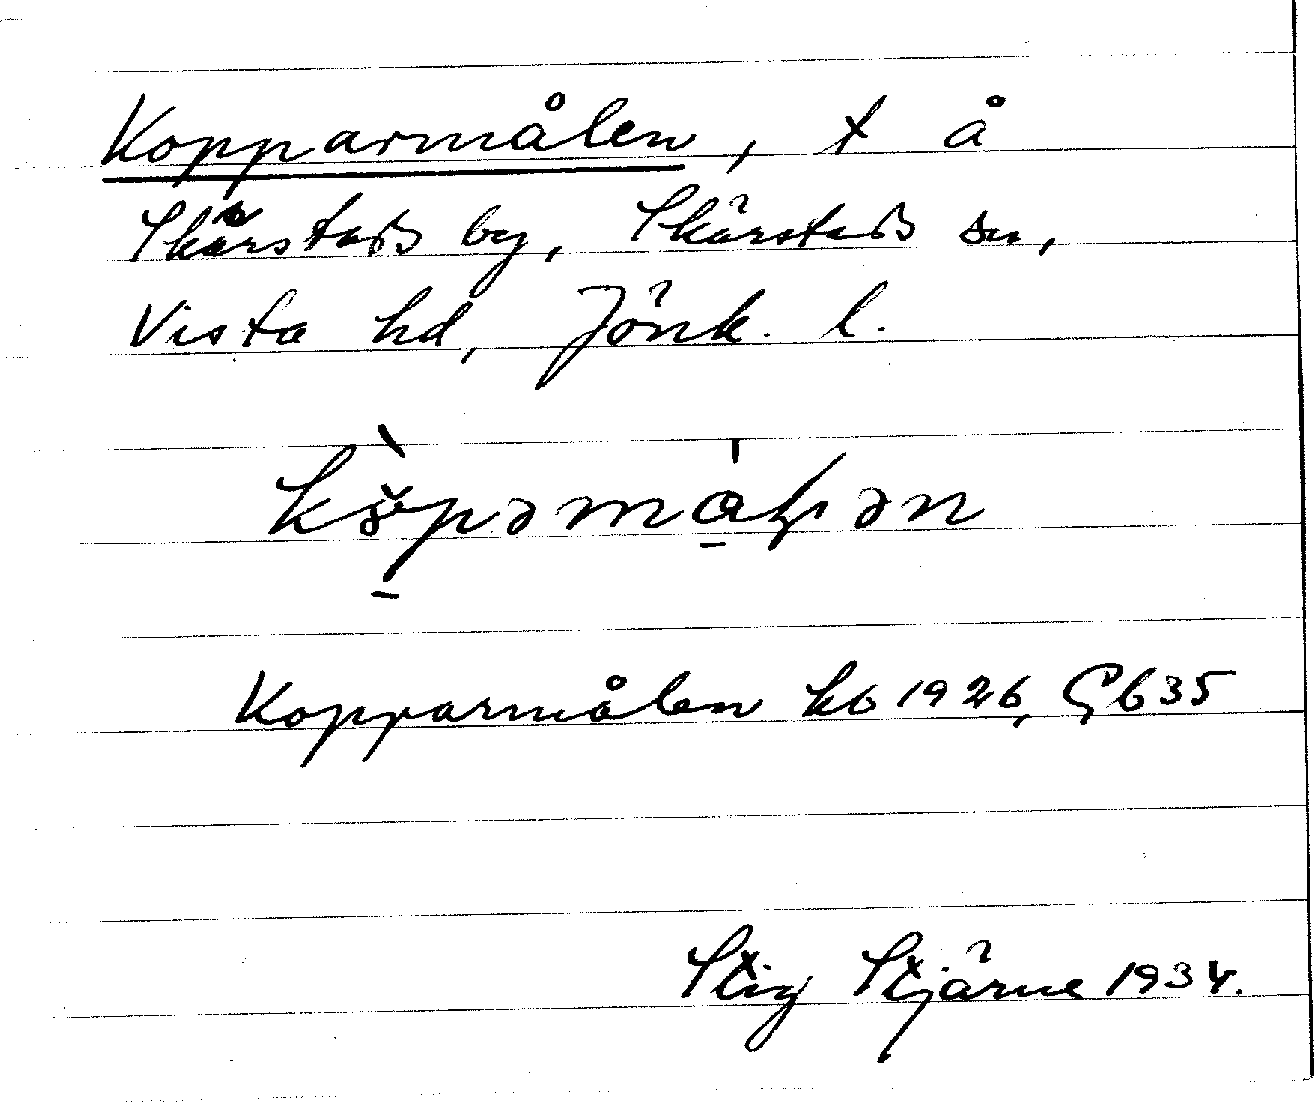 Kopparmålen, t å
Skärstads by, Skärstads sn,
Vista hd, Jönk. l.
Kopparmålen kb 1926, G 635
Stig Stjärne 1934.